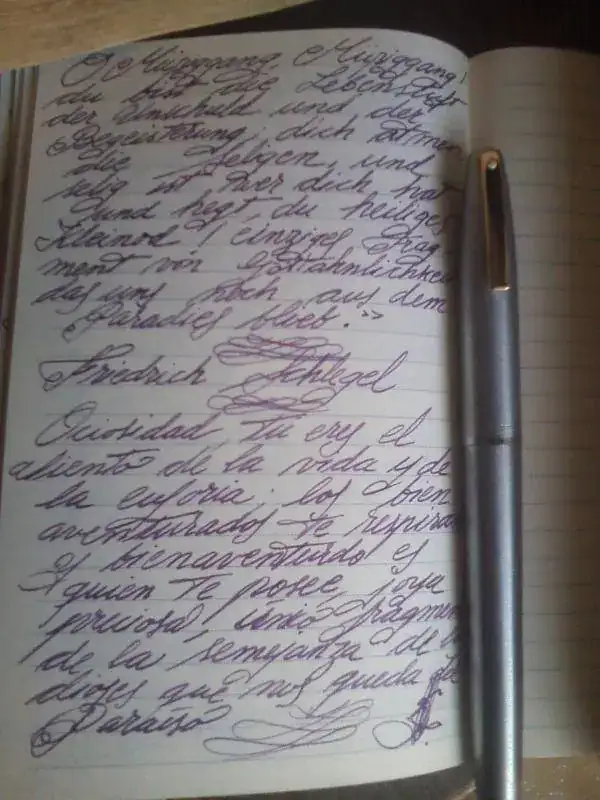 O Müßiggang, Müßiggang!
du bist die Lebensluft
der Unschuld und der
Begeisterung; dich atmen
die Seligen, und
selig ist wer dich hat
und hegt, du heiliges
Kleinod! einziges Frag-
ment von Gottähnlichkei
das uns noch aus dem
Paradies blieb.>>
Friedrich Schlegel
Ociosidad, tú eres el
aliento de la vida y de
la euforia; los bien
aventurados te respira
y bienaventurdo es
quien te posee, joya
preciosa, único fragmen
de la semejanza de
dioses que nos queda
Paraíso